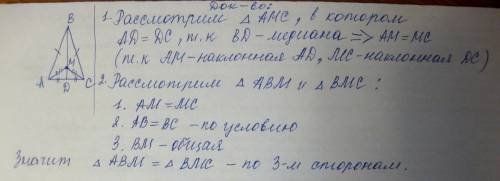 Док-во:
1. Рассмотрим △ AMC, в котором
AD = DC, т.к BD-медиана => AM=MC
(т.к AM-наклонная AD, MC-наклонная DC)
2. Рассмотрим △ ABM и △ BMC :
1. AM=MC
2. AB=BC - по условию
3. BM - общая
Значит △ ABM = △ BMC - по 3-м сторонам.
B
M
A
D
C